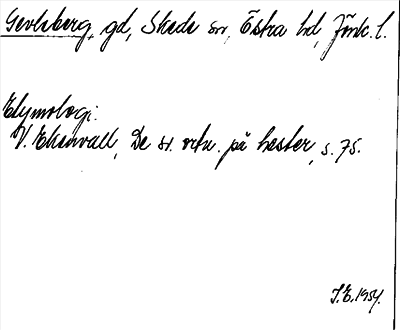 Gevleberg, gd, Skede sn, Östra hd, Jönk. l.
Etymologi:
V. Ekenvall, De sv. ortn. på hester, s. 75.
J.E. 1954.